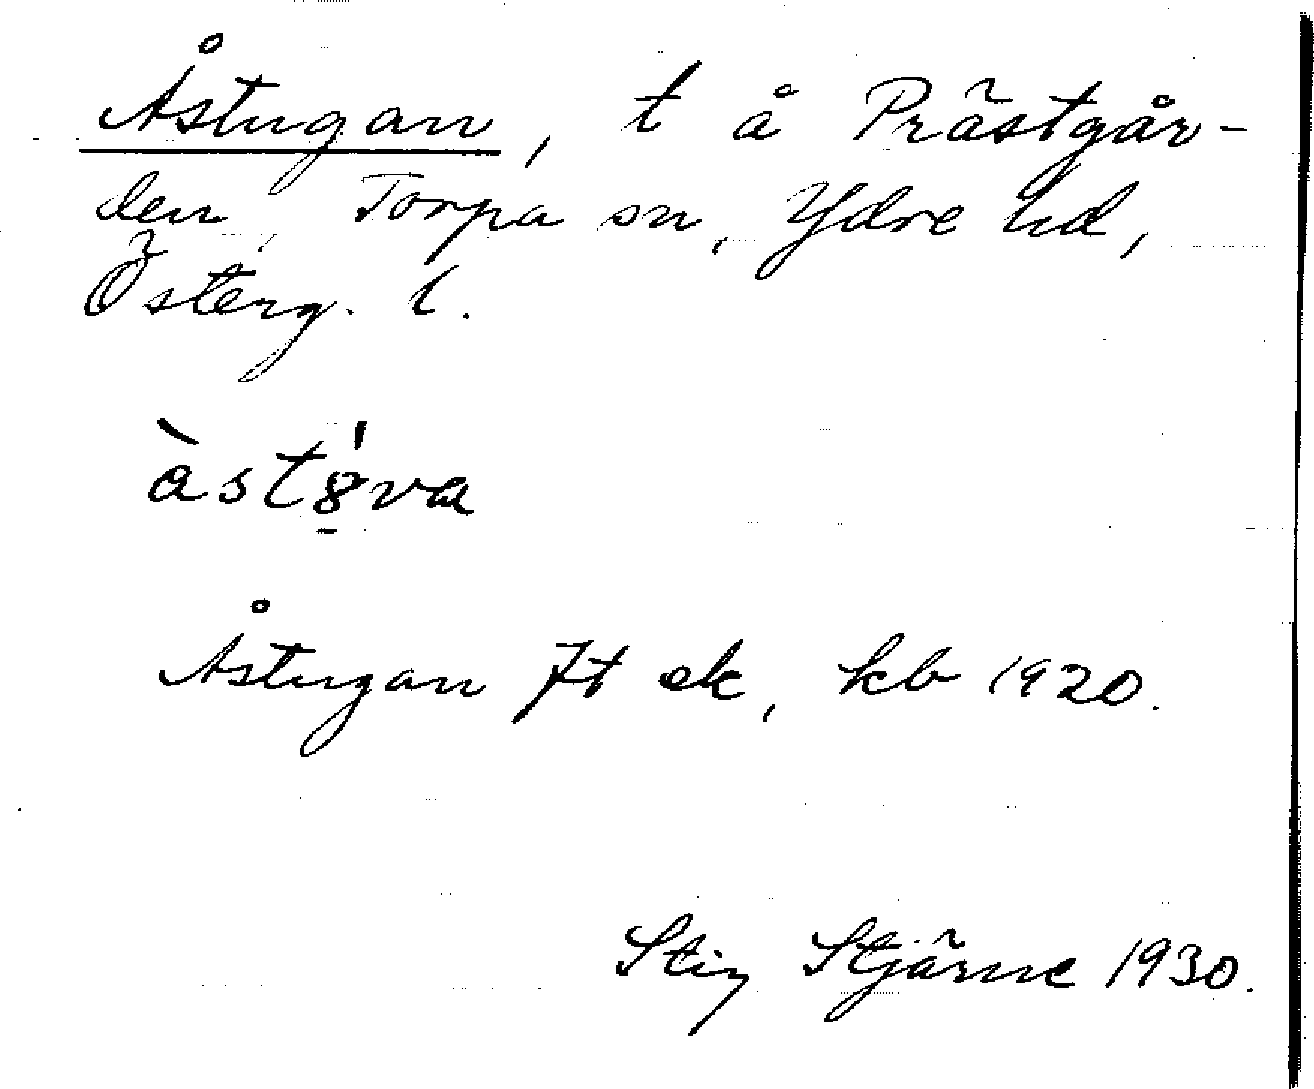 Åstugan, t å Prästgår-
den, Torpa sn, Ydre hd,
Österg. l.
Åstugan Jt ek, kb 1920.
Stig Stjärne 1930.